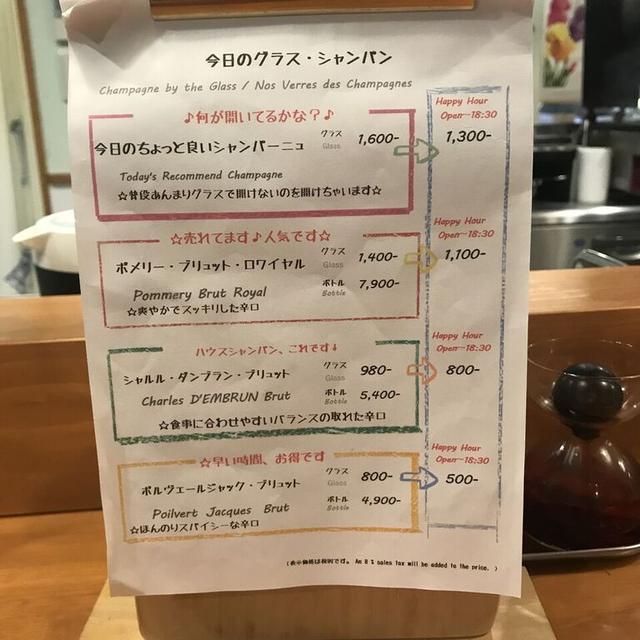 今日のグラス・シャンパン
Champagne by the Glass / Nos Verres des Champagnes
♪何が開いてるかな？♪
今日のちょっと良いシャンパーニュ
グラス
Glass
1,600-
Happy Hour
Open~18:30
1,300-
Today's Recommend Champagne
☆普段あんまりグラスで開けないのを開けちゃいます☆
☆売れてます♪人気です☆
ポメリー・ブリュット・ロワイヤル
グラス
Glass
1,400-
Happy Hour
Open~18:30
1,100-
Pommery Brut Royal
ボトル
Bottle
7,900-
☆爽やかでスッキリした辛口
ハウスシャンパン、これです↓
シャルル・ダンブラン・ブリュット
グラス
Glass
980-
Happy Hour
Open~18:30
800-
Charles D'EMBRUN Brut
ボトル
Bottle
5,400-
☆食事に合わせやすいバランスの取れた辛口
☆早い時間、お得です
ポルヴェールジャック・ブリュット
グラス
Glass
800-
Happy Hour
Open~18:30
500-
Poilvert Jacques Brut
ボトル
Bottle
4,900-
☆ほんのりスパイシーな辛口
(表示価格は税別です。 An 8 % sales tax will be added to the price. )